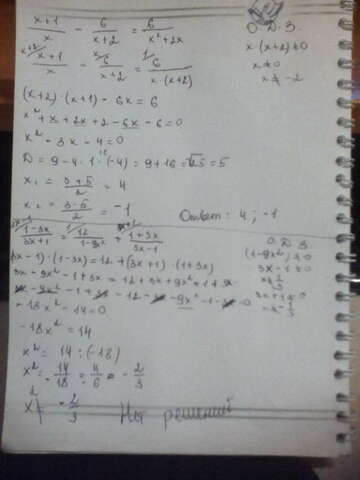 x+1/x - 6/x+2 = 6/x²+2x
О.Д.З.
x+2/ x+1/x - x/ 6/x+2 = 1/ 6/x(x+2)
x·(x+2)≠0
x≠0
x≠-2
(x+2)·(x+1)-6x=6
x²+x+2x+2-6x-6=0
x²-3x-4=0
D=9-4·1·(-4)=9+16=√25=5
x₁=3+5/2=4
x₂=3-5/2=-1
Ответ: 4; -1
1-3x/3x+1 = 12/1-9x² + 1+3x/3x-1
О.Д.З
(1-9x²)≠0
(3x-1)·(1-3x)=12+(3x+1)·(1+3x)
3x-1≠0
3x-9x²-1+3x=12+3x+9x²+1+3x
x≠1/3
3x+1≠0
3x-9x²-1+3x-12-3x-9x²-1-3x=0
x≠-1/3
-18x²-14=0
-18x²=14
x²=14:(-18)
x²=-14/18=4/6=-2/3
x²≠-2/3
Нет решений